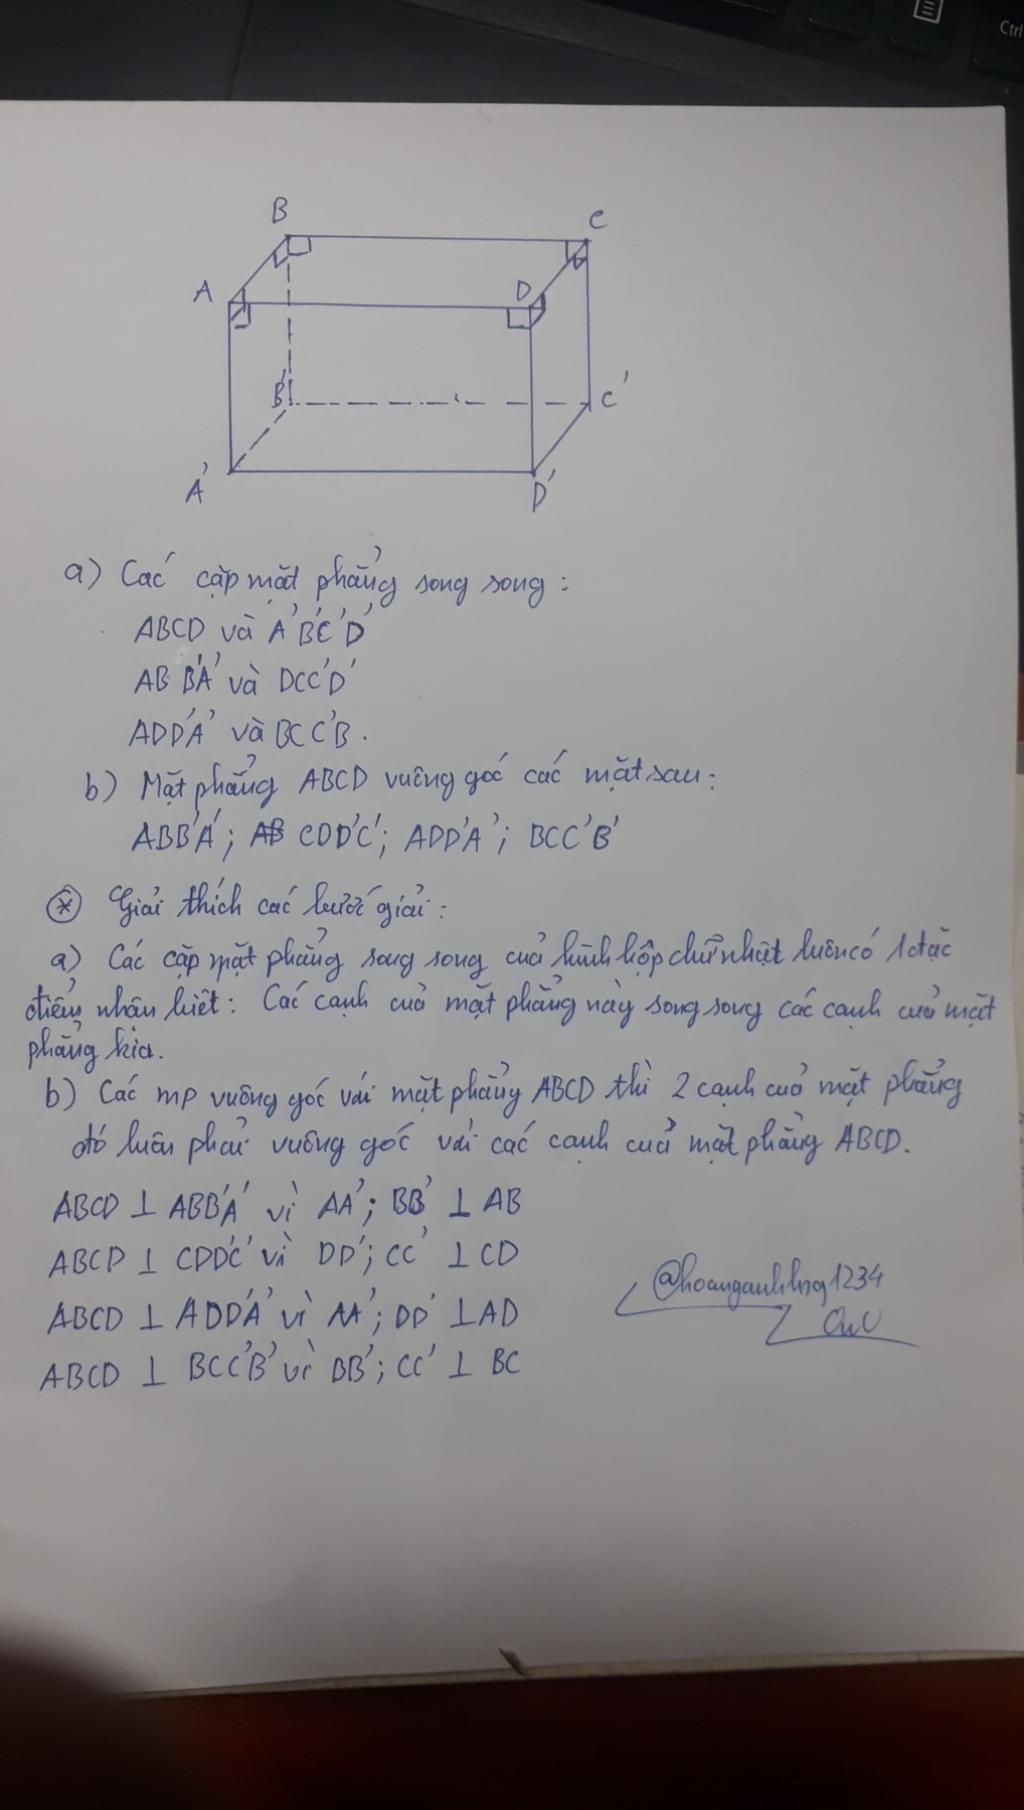 Ctrl
B
C
A
D
B'
C'
A'
D'
a) Các cặp mặt phẳng song song :
ABCD và A'B'C'D'
ABB'A' và DCC'D'
ADD'A' và BCC'B.
b) Mặt phẳng ABCD vuông góc các mặt sau:
ABB'A'; AB CDD'C'; ADD'A'; BCC'B'
* Giải thích các bước giải:
a) Các cặp mặt phẳng song song của hình hộp chữ nhật luôn có 1 đặc
điểm nhận biết: Các cạnh của mặt phẳng này song song các cạnh của mặt
phẳng kia.
b) Các mp vuông góc với mặt phẳng ABCD thì 2 cạnh của mặt phẳng
đó luôn phải vuông góc với các cạnh của mặt phẳng ABCD.
ABCD ⊥ ABB'A' vì AA'; BB' ⊥ AB
ABCD ⊥ CDD'C' vì DD'; CC' ⊥ CD
ABCD ⊥ ADD'A' vì AA'; DD' ⊥ AD
ABCD ⊥ BCC'B' vì BB'; CC' ⊥ BC